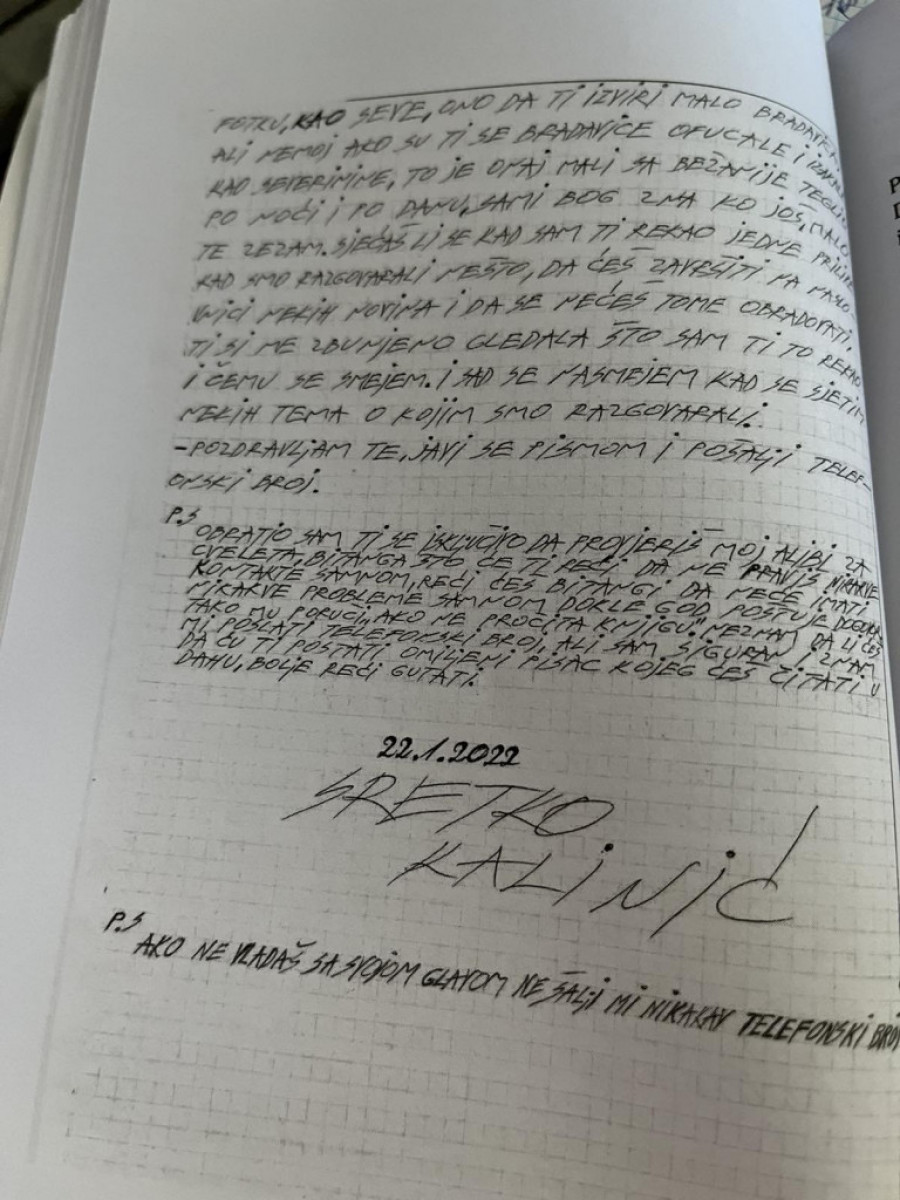 FOTKU, KAO SEVE, ONO DA TI IZVIRI MALO
ALI NEMOJ AKO SU TI SE BRADAVICE OFUCALE I
KAO SEVERININE, TO JE ONAJ MALI SA BEŽANIJE TEGLIO
PO NOĆI I PO DANU, SAMI BOG ZNA KO JOŠ, MALO
TE ZEZAM. SJEĆAŠ LI SE KAD SAM TI REKAO JEDNE
KAD SMO RAZGOVARALI NEŠTO, DA ĆEŠ ZAVRŠITI NA NASLO-
VNICI NEKIH NOVINA I DA SE NEĆEŠ TOME OBRADOVATI.
TI SI ME ZBUNJENO GLEDALA ŠTO SAM TI TO REKAO
I ČEMU SE SMEJEM. I SAD SE NASMEJEM KAD SE SJETIM
NEKIH TEMA O KOJIM SMO RAZGOVARALI.
-POZDRAVLJAM TE, JAVI SE PISMOM I POŠALJI TELEF-
ONSKI BROJ.
P.S
OBRATIO SAM TI SE ISKLJUČIVO DA PROVJERIŠ MOJ ALIBI ZA
CVELETA, BITANGA ŠTO ĆE TI REĆI DA NE PRAVIŠ NIKAKVE
KONTAKTE SAMNOM, REĆI ĆEŠ BITANGI DA NEĆE IMATI
NIKAKVE PROBLEME SAMNOM DOKLE GOD POŠTUJE
TAKO MU PORUČI, "AKO NE PROČITA KNJIGU" NEZNAM DA LI ĆEŠ
MI POSLATI TELEFONSKI BROJ, ALI SAM SIGURAN I ZNAM
DA ĆU TI POSTATI OMILJENI PISAC KOJEG ĆEŠ ČITATI U
DAHU, BOLJE REĆI GUTATI.
22.1.2022
SRETKO
KALINIĆ
P.S
AKO NE VLADAŠ SA SVOJOM GLAVOM NE ŠALJI MI NIKAKAV TELEFONSKI BROJ